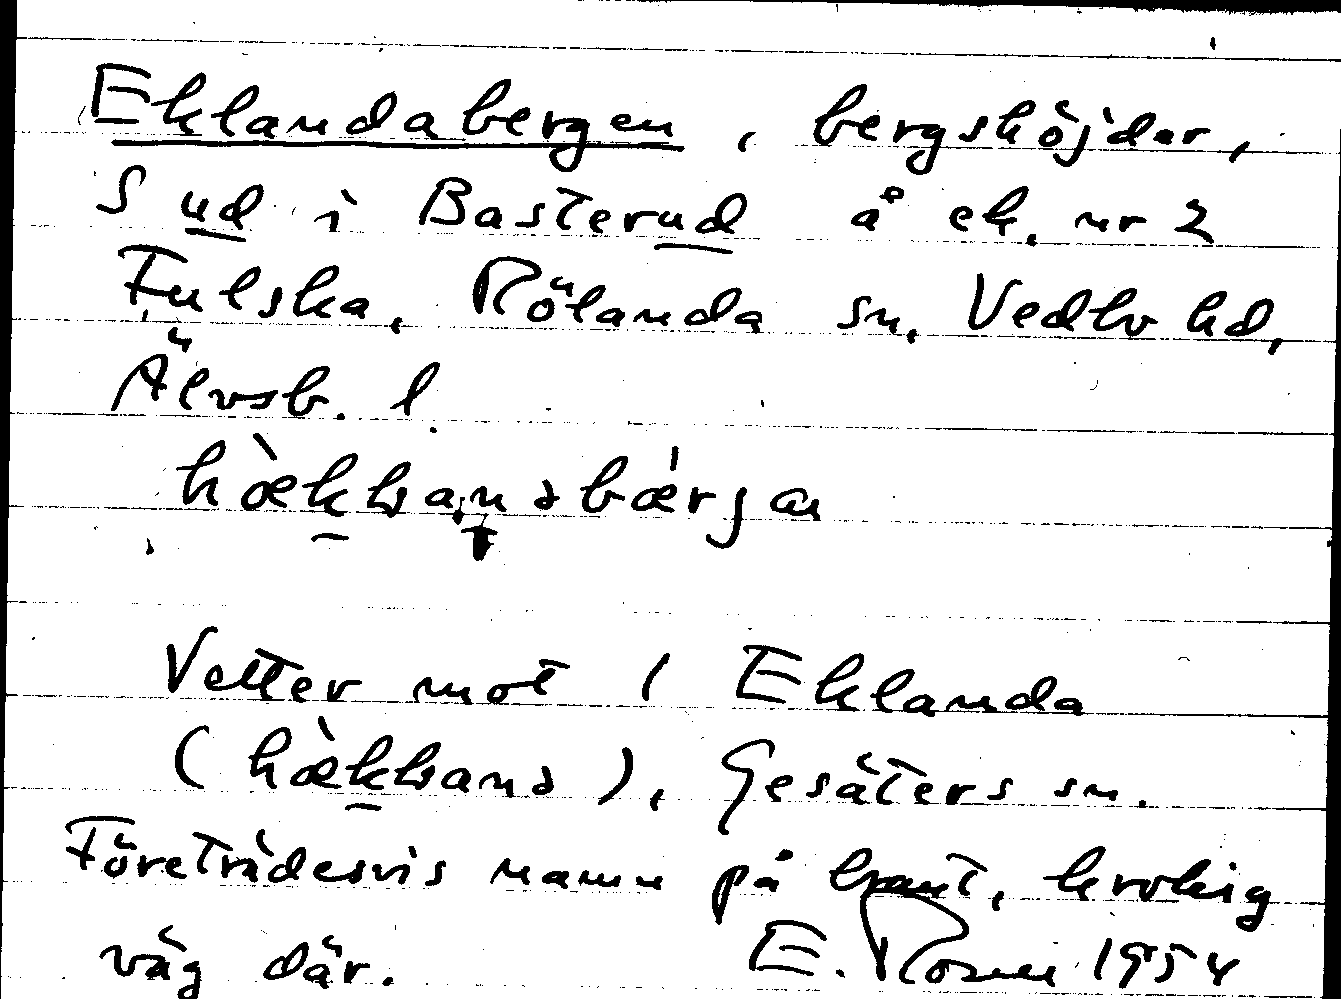 Eklandabergen, bergshöjder,
S ud i Basterud å ek. nr 2
Fulska, Rölanda sn, Vedbo hd,
Älvsb. l.
Vetter mot Eklanda
Gesäters sn.
Företrädesvis namn på brant, krokig
väg där. E. Rosen 1954